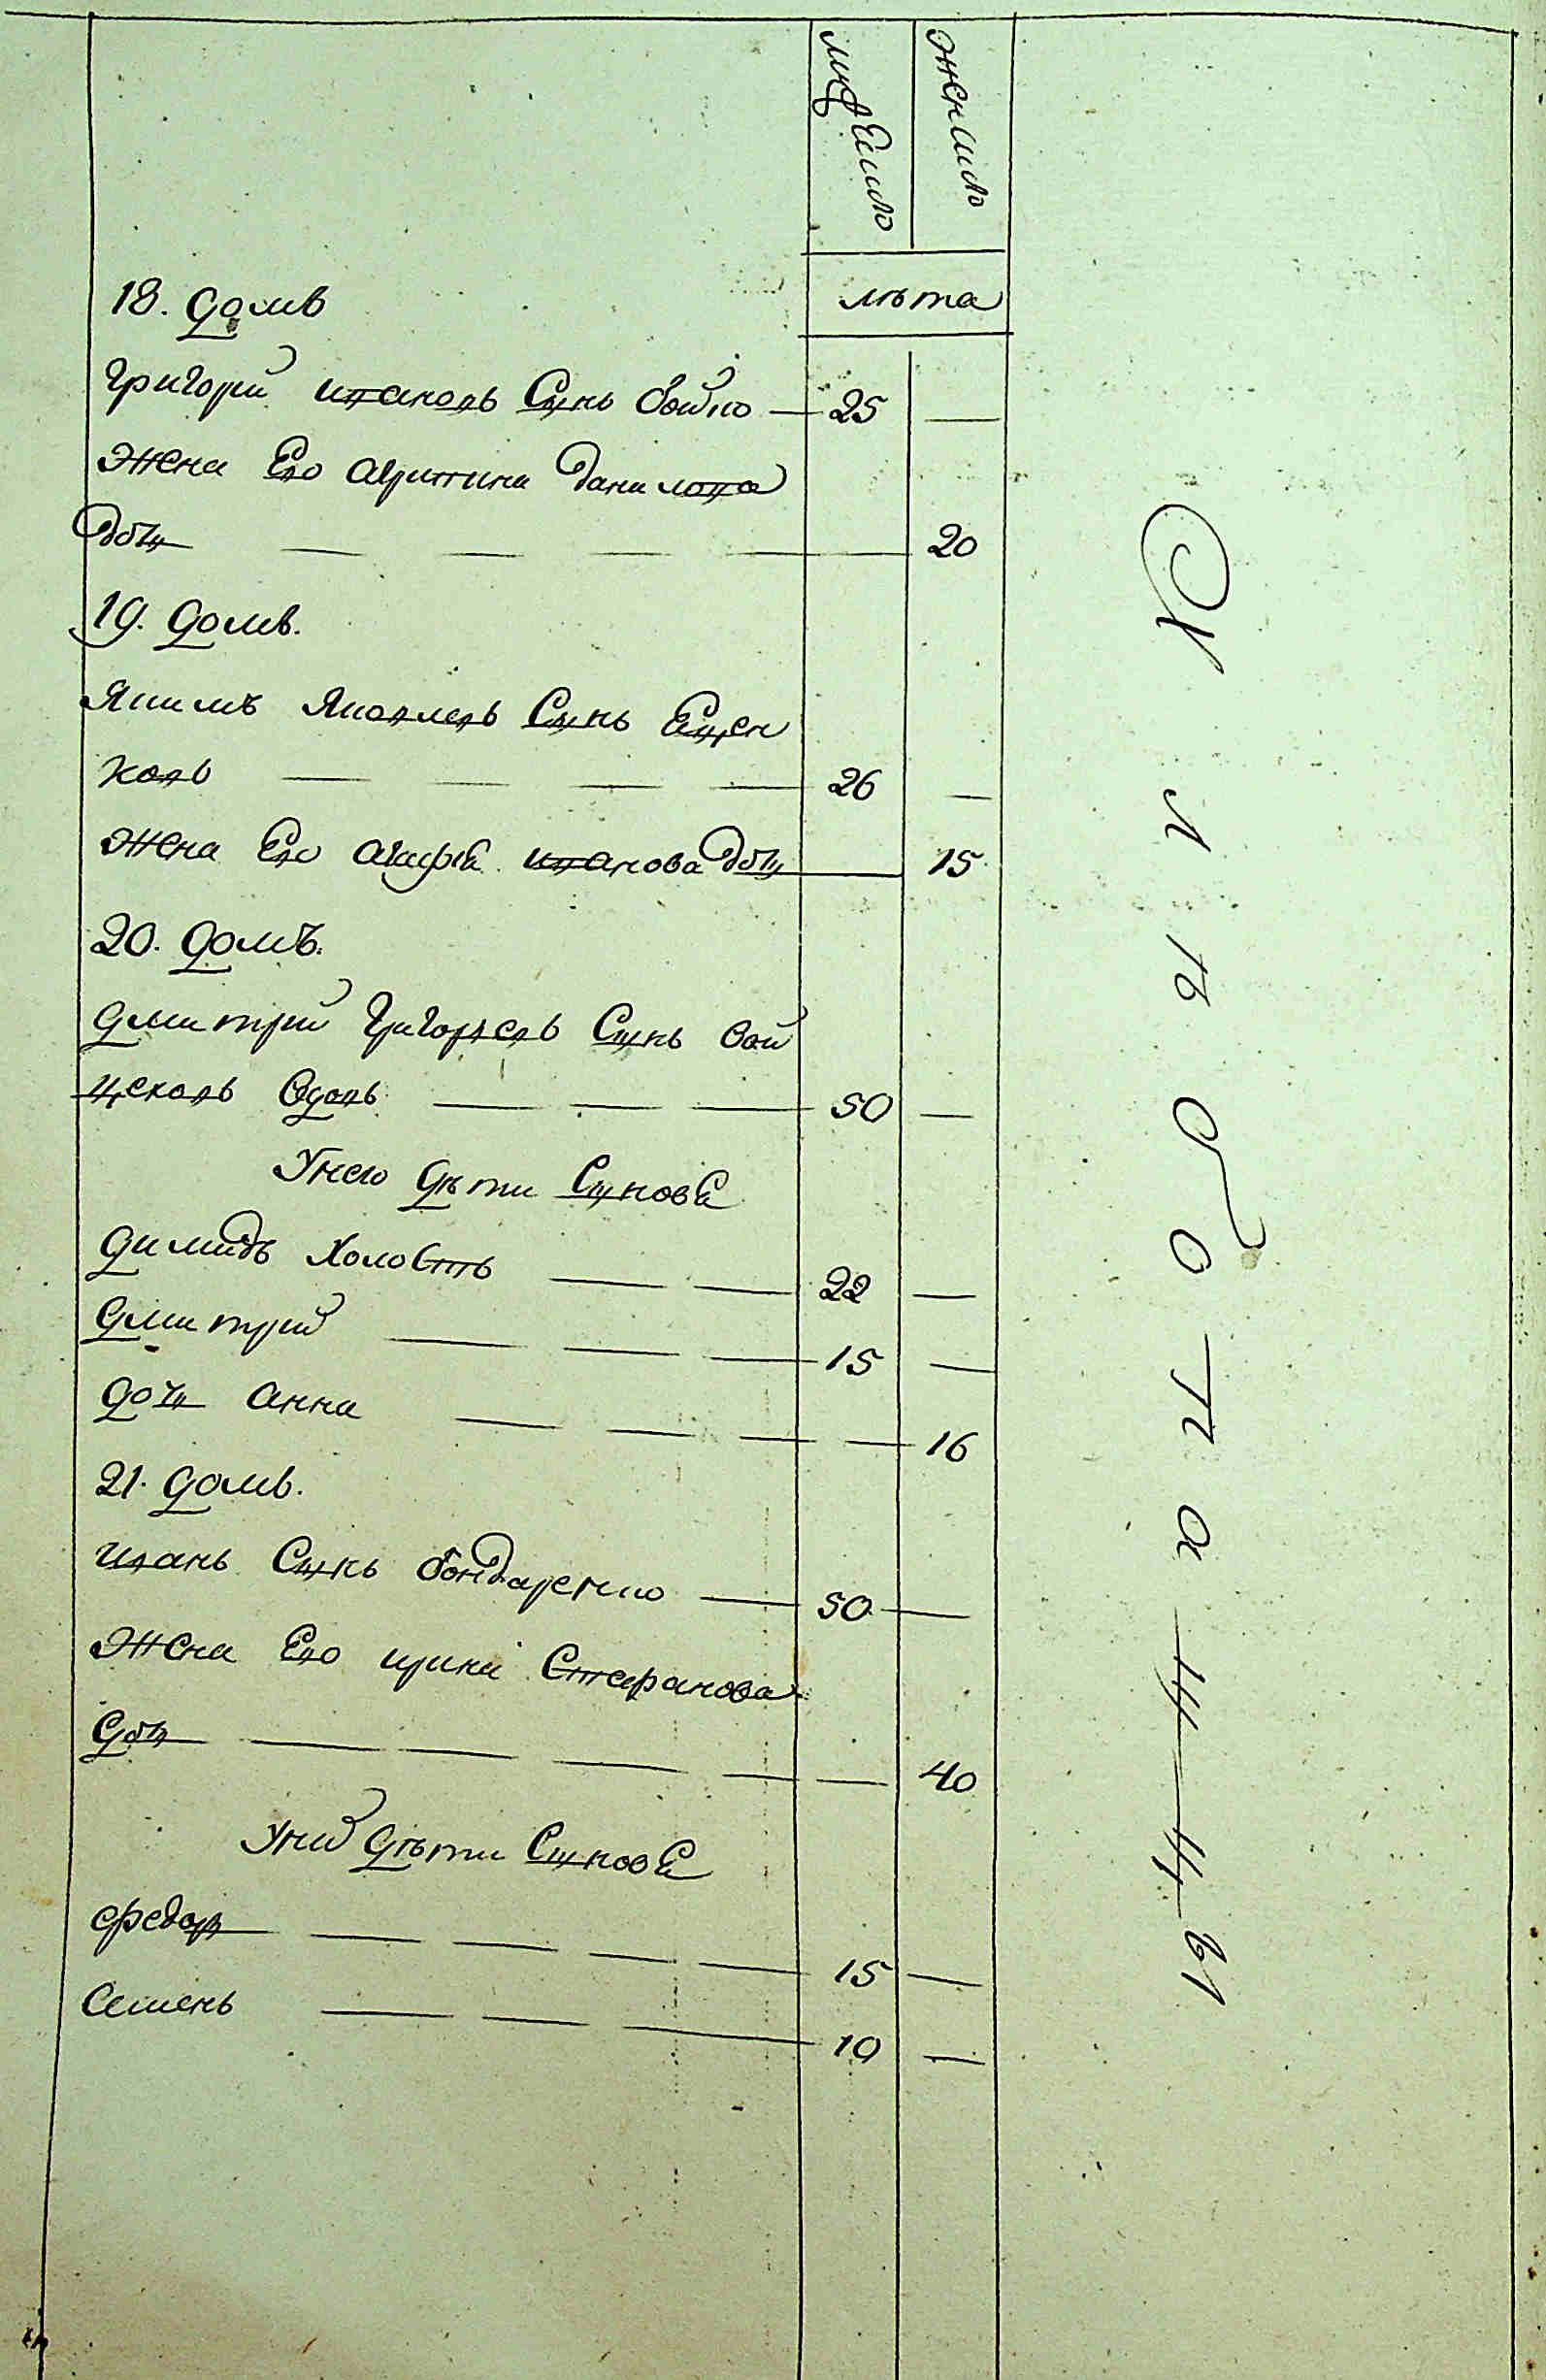 мужеско
женско
лѣта
18. домъ
Григорий Ивановъ Сынъ бойко — 25 —
Жена Его Агрипина Данилова
дочь — — — — 20
19. домъ.
Яким Яковлевъ Сынъ Ещен
ковъ — — — — 26 —
Жена Его Агафiя Иванова дочь — 15
20. домъ.
Дмитрий Григорьевъ Сынъ вой
цеховъ вдовъ — — — 50 —
У него дѣти Синовья
димидъ Холостъ — — 22 —
Дмитрий — — — 15 —
дочь Анна — — — — 16
21. домъ.
Иванъ Сынъ бондаренко — 50 —
Жена Его ирина Стефанова
дочь — — — — — 40
У них дѣти Синовья
федор — — — — 15 —
Семенъ — — — 10 —